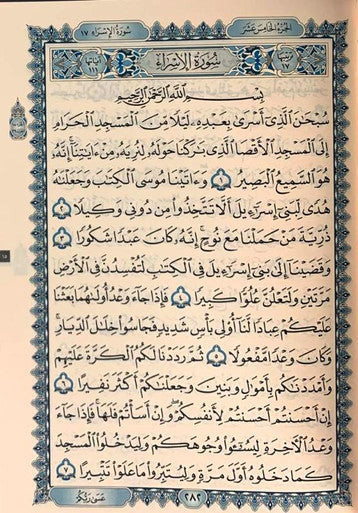 الجزء الخامس عشر
سورة الإسراء ١٧
ترتيبها ١٧
سُورَةُ الإِسْرَاءِ
آياتها ١١١
بِسْمِ اللَّهِ الرَّحْمَٰنِ الرَّحِيمِ
سُبْحَٰنَ ٱلَّذِىٓ أَسْرَىٰ بِعَبْدِهِۦ لَيْلًا مِّنَ ٱلْمَسْجِدِ ٱلْحَرَامِ
إِلَى ٱلْمَسْجِدِ ٱلْأَقْصَا ٱلَّذِى بَٰرَكْنَا حَوْلَهُۥ لِنُرِيَهُۥ مِنْ ءَايَٰتِنَآ إِنَّهُۥ
هُوَ ٱلسَّمِيعُ ٱلْبَصِيرُ ١ وَءَاتَيْنَا مُوسَى ٱلْكِتَٰبَ وَجَعَلْنَٰهُ
هُدًى لِّبَنِىٓ إِسْرَٰٓءِيلَ أَلَّا تَتَّخِذُوا۟ مِن دُونِى وَكِيلًا ٢
ذُرِّيَّةَ مَنْ حَمَلْنَا مَعَ نُوحٍ إِنَّهُۥ كَانَ عَبْدًا شَكُورًا ٣
وَقَضَيْنَآ إِلَىٰ بَنِىٓ إِسْرَٰٓءِيلَ فِى ٱلْكِتَٰبِ لَتُفْسِدُنَّ فِى ٱلْأَرْضِ
مَرَّتَيْنِ وَلَتَعْلُنَّ عُلُوًّا كَبِيرًا ٤ فَإِذَا جَآءَ وَعْدُ أُولَىٰهُمَا بَعَثْنَا
عَلَيْكُمْ عِبَادًا لَّنَآ أُو۟لِى بَأْسٍ شَدِيدٍ فَجَاسُوا۟ خِلَٰلَ ٱلدِّيَارِ
وَكَانَ وَعْدًا مَّفْعُولًا ٥ ثُمَّ رَدَدْنَا لَكُمُ ٱلْكَرَّةَ عَلَيْهِمْ
وَأَمْدَدْنَٰكُم بِأَمْوَٰلٍ وَبَنِينَ وَجَعَلْنَٰكُمْ أَكْثَرَ نَفِيرًا ٦
إِنْ أَحْسَنتُمْ أَحْسَنتُمْ لِأَنفُسِكُمْ وَإِنْ أَسَأْتُمْ فَلَهَا فَإِذَا جَآءَ
وَعْدُ ٱلْءَاخِرَةِ لِيَسُۥٓـُٔوا۟ وُجُوهَكُمْ وَلِيَدْخُلُوا۟ ٱلْمَسْجِدَ
كَمَا دَخَلُوهُ أَوَّلَ مَرَّةٍ وَلِيُتَبِّرُوا۟ مَا عَلَوْا۟ تَتْبِيرًا ٧
٢٨٢
عَسَىٰ رَبُّكُمْ